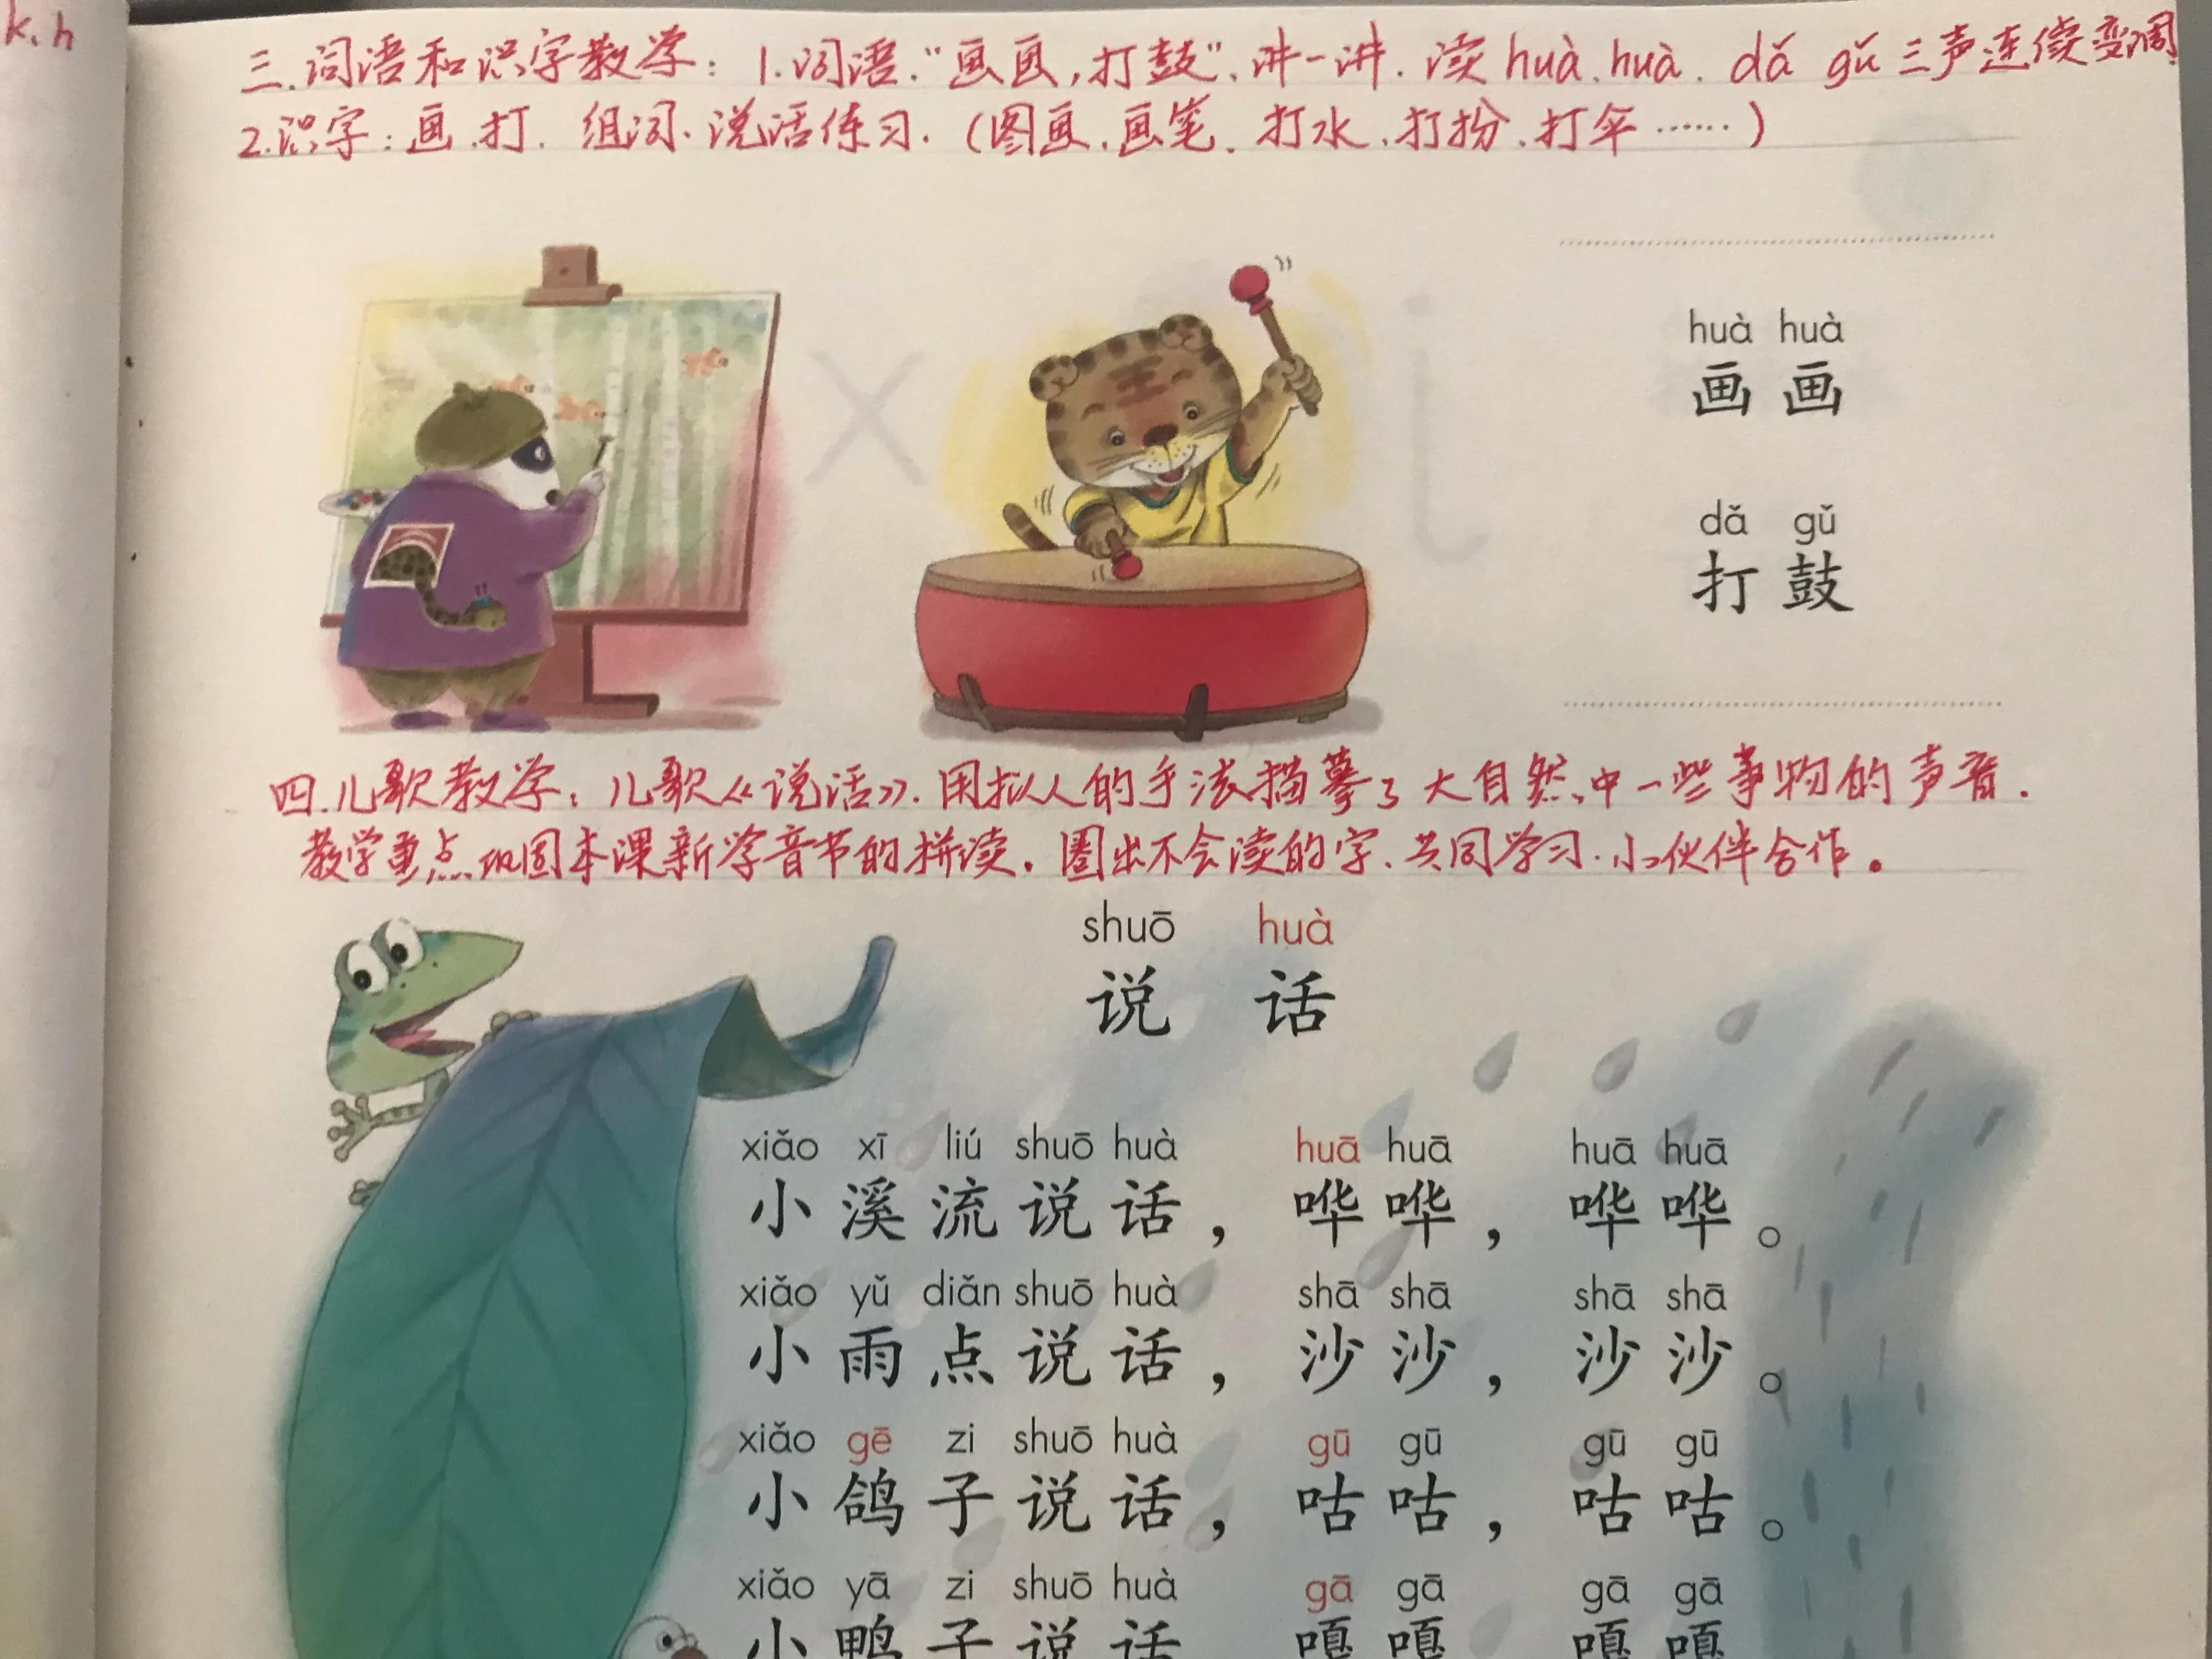 k、h
三.词语和识字教学：1.词语.“画画，打鼓”、讲一讲.读huà.huà.dǎ gǔ三声连续变调
2.识字：画.打.组词.说话练习.(图画.画笔.打水.打扮.打伞……)
huà huà
画画
dǎ gǔ
打鼓
四.儿歌教学：儿歌《说话》.用拟人的手法描摹了大自然中一些事物的声音.
教学重点巩固本课新学音节的拼读。圈出不会读的字.共同学习.小伙伴合作。
shuō huà
说话
xiǎo xī liú shuō huà huā huā huā huā
小溪流说话，哗哗，哗哗。
xiǎo yǔ diǎn shuō huà shā shā shā shā
小雨点说话，沙沙，沙沙。
xiǎo gē zi shuō huà gū gū gū gū
小鸽子说话，咕咕，咕咕。
xiǎo yā zi shuō huà gā gā gā gā
小鸭子说话 嘎嘎 嘎嘎